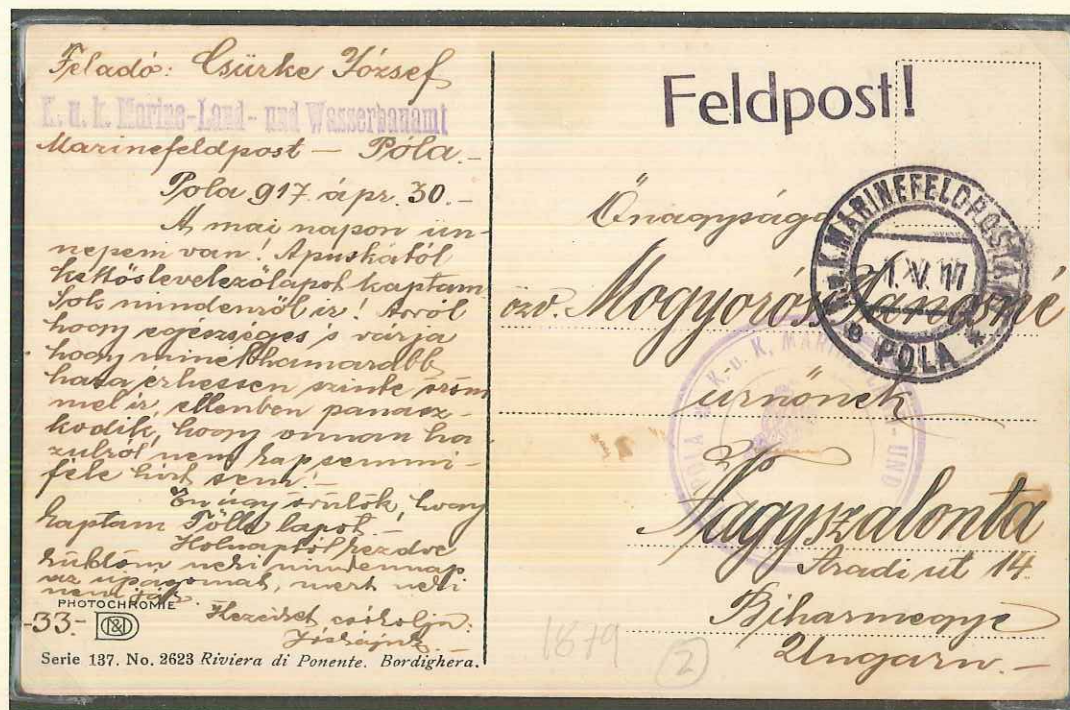 Feladó: Csürke József
K. u. k. Marine-Land- und Wasserbauamt
Marinefeldpost — Póla.-
Pola 917. ápr. 30.-
A mai napon ün-
nepem van! Apuskától
kettőslevelezőlapot kaptam
Sok mindenről ir! Arról
hogy egészséges s várja
hogy minél hamarább
haza érhessen szinte öröm
mel ir, ellenben panasz-
kodik, hogy onnan ha-
zulról nem kap semmi-
féle hirt sem!
Én úgy örülök, hogy
kaptam Tőlle lapot.-
Holnaptól kezdve
küldöm neki mindennap
az mert neki
nem
Kezeiket csókolja:
PHOTOCHROMIE
-33-
Serie 137. No. 2623 Riviera di Ponente. Bordighera.
Feldpost!
K.u.K. MARINEFELDPOSTAMT
1.V.17
POLA
Őnagysága
özv. Mogyorós Jánosné
úrnőnek
POLA K.-u. K. UND
Nagyszalonta
Aradi ut 14.
Biharmegye
Ungarn.-
1879
2